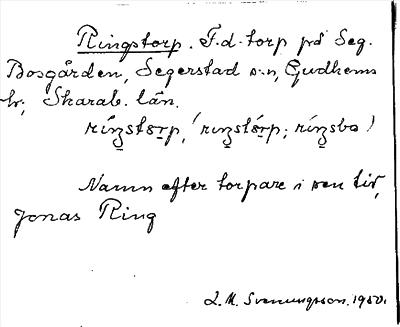 Ringstorp. F.d. torp på Seg.
Bosgården, Segerstad s:n, Gudhems
hr, Skarab. län.
Namn efter torpare i sen tid,
Jonas Ring
L.M. Svenungsson. 1950.